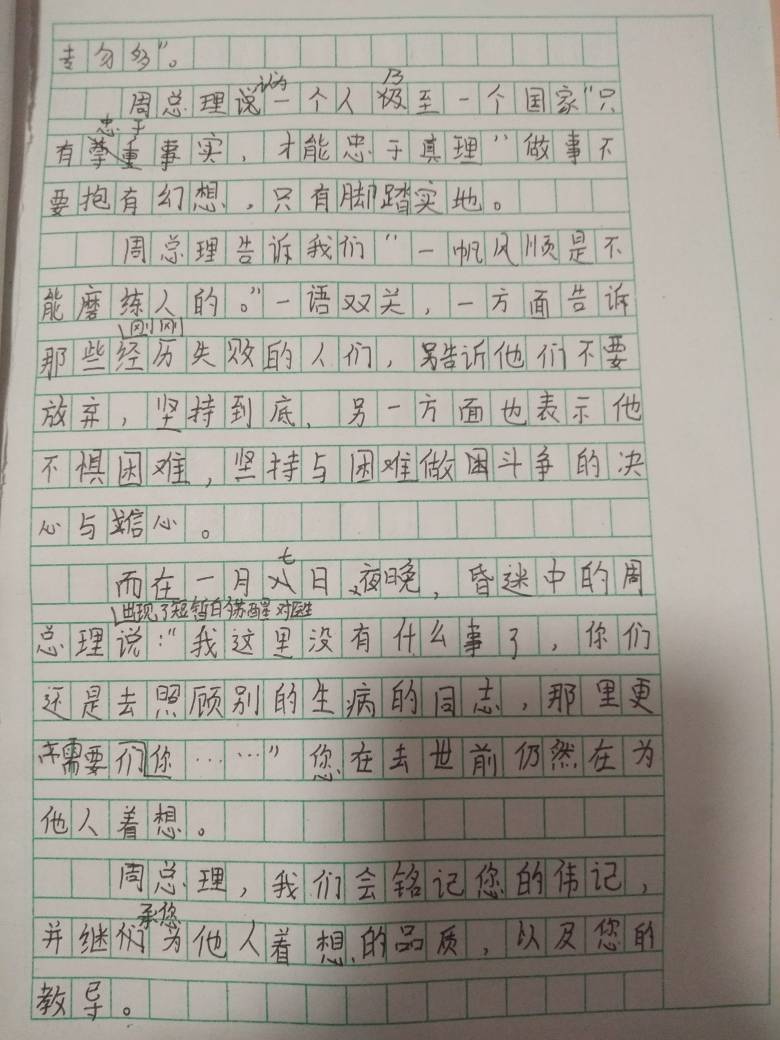 专勿多”。
认为 乃
周总理说一个人极至一个国家“只
忠于
有尊重事实，才能忠于真理”做事不
要抱有幻想，只有脚踏实地。
周总理告诉我们“一帆风顺是不
能磨练人的。”一语双关，一方面告诉
刚刚
那些经历失败的人们，另告诉他们不要
放弃，坚持到底，另一方面也表示他
不惧困难，坚持与困难做困斗争的决
心与信心。
七
而在一月八日夜晚，昏迷中的周
出现了短暂的苏醒对医生
总理说：“我这里没有什么事了，你们
还是去照顾别的生病的同志，那里更
需要们你……”您在去世前仍然在为
他人着想。
周总理，我们会铭记您的伟记，
承您
并继们为他人着想的品质，以及您的
教导。